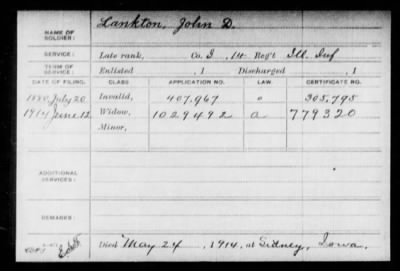 NAME OF SOLDIER: Lankton, John D.
SERVICE: Late rank, Co. I, 14 Reg't Ill. Inf
TERM OF SERVICE: Enlisted , 1 Discharged , 1
DATE OF FILING. CLASS. APPLICATION NO. LAW. CERTIFICATE NO.
1880 July 20 Invalid, 407,967 305,795
1914 June 12 Widow, 1029492 a 779320
Minor,
ADDITIONAL SERVICES:
REMARKS:
Died May 24, 1914, at Sidney, Iowa.